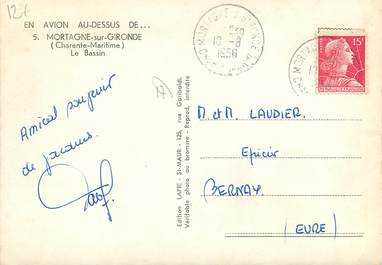 12€
EN AVION AU-DESSUS DE...
5. MORTAGNE-sur-GIRONDE
(Charente-Maritime)
Le Bassin
Amical souvenir
de Jacques
Edition LAPIE - St-MAUR - 123, rue Garibaldi.
Véritable photo au bromure - Reprod. interdite
MORTAGNE S GIRONDE
1956
15F
M. et M. LAUDIER.
Epicier
BERNAY.
(EURE)